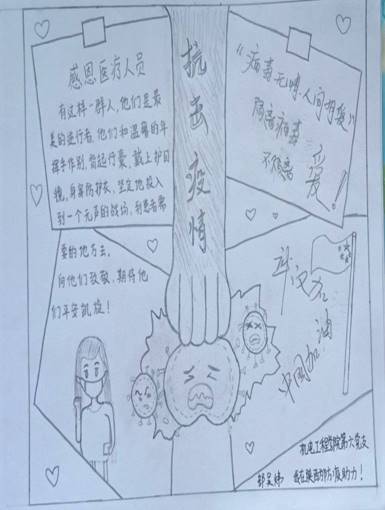 感恩医疗人员
有这样一群人，他们是最
美的逆行者，他们和温馨的年
挥手作别，背起行囊，戴上护目
镜，身穿防护衣，坚定地投入
到一个无声的战场，到患者需
要的地方去。
向他们致敬，期待他
们平安凯旋！
抗击疫情
"病毒无情，人间有爱"
隔离病毒
不隔离
爱！
武汉加油
中国加油
机电工程学院第六党支
我在陕西防疫助力！